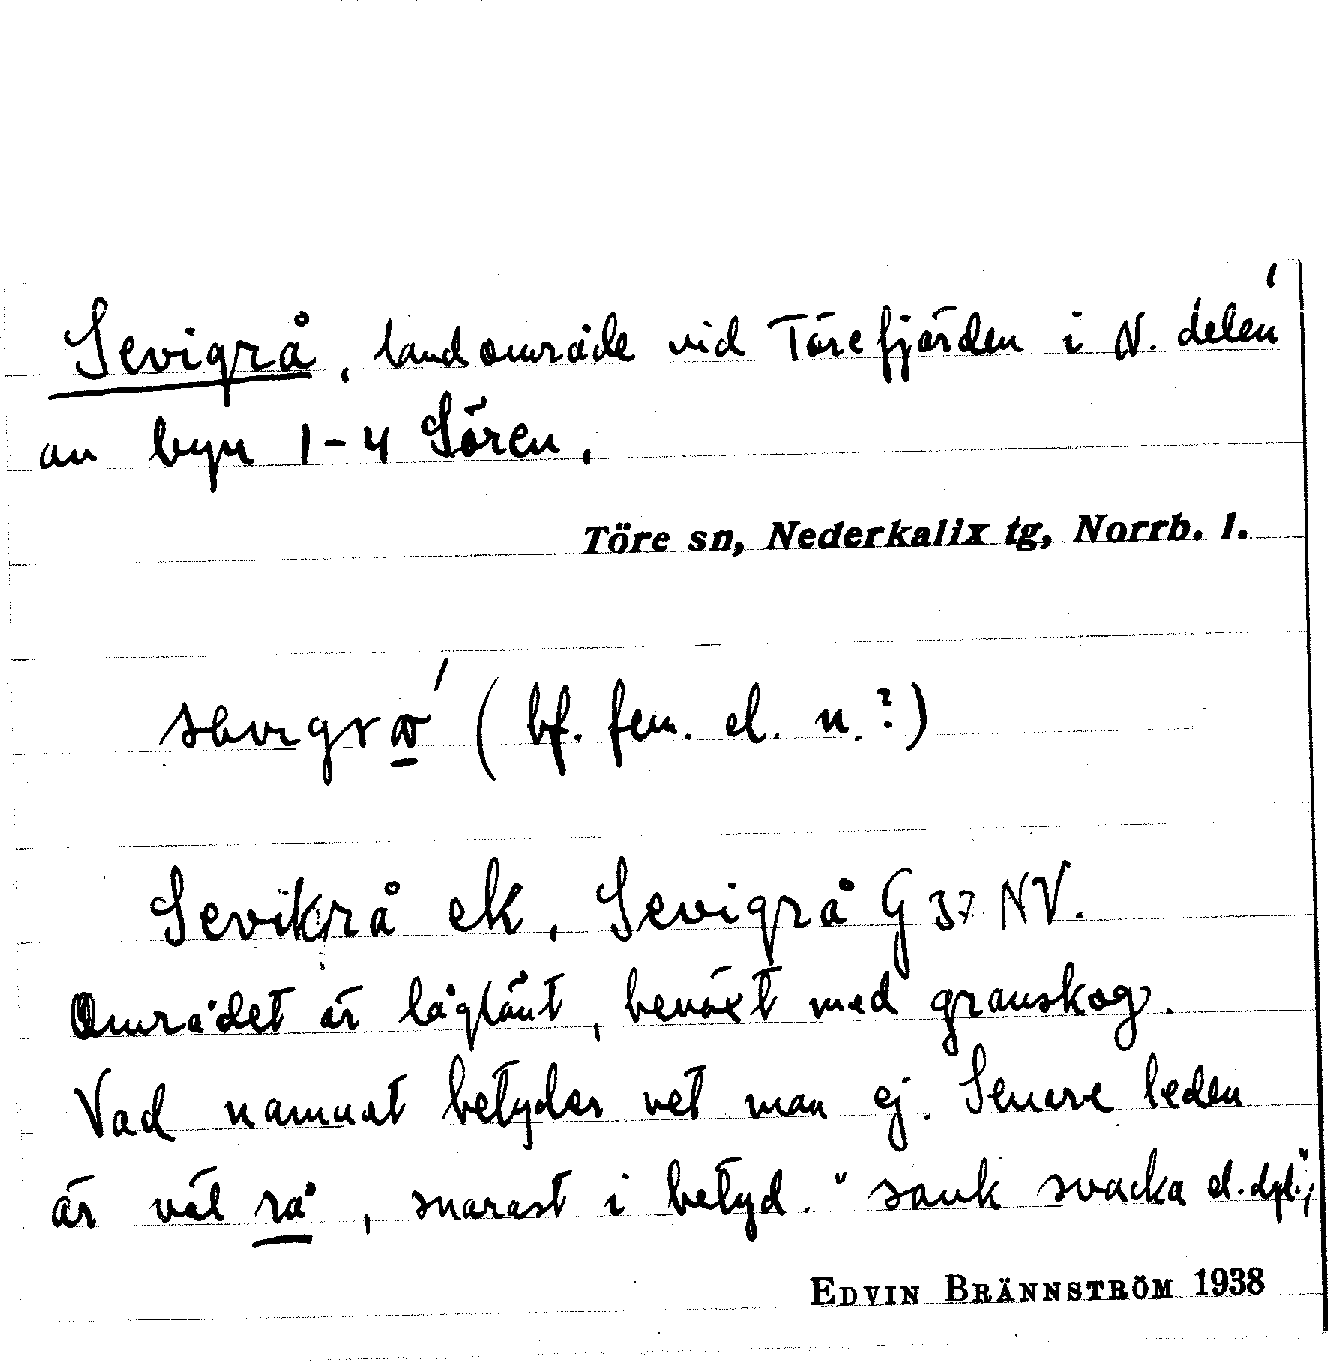 Sevigrå, landområde vid Törefjärden i N. delen
av byn 1-4 Sören.
Töre sn, Nederkalix tg, Norrb. l.
(bf. fem. el. n.?)
Sevikrå ek, Sevigrå G 37 NV.
Området är låglänt, beväxt med granskog.
Vad namnet betyder vet man ej. Senare leden
är väl rå, snarast i betyd. "sank svacka el. dyl.",
EDVIN BRÄNNSTRÖM 1938